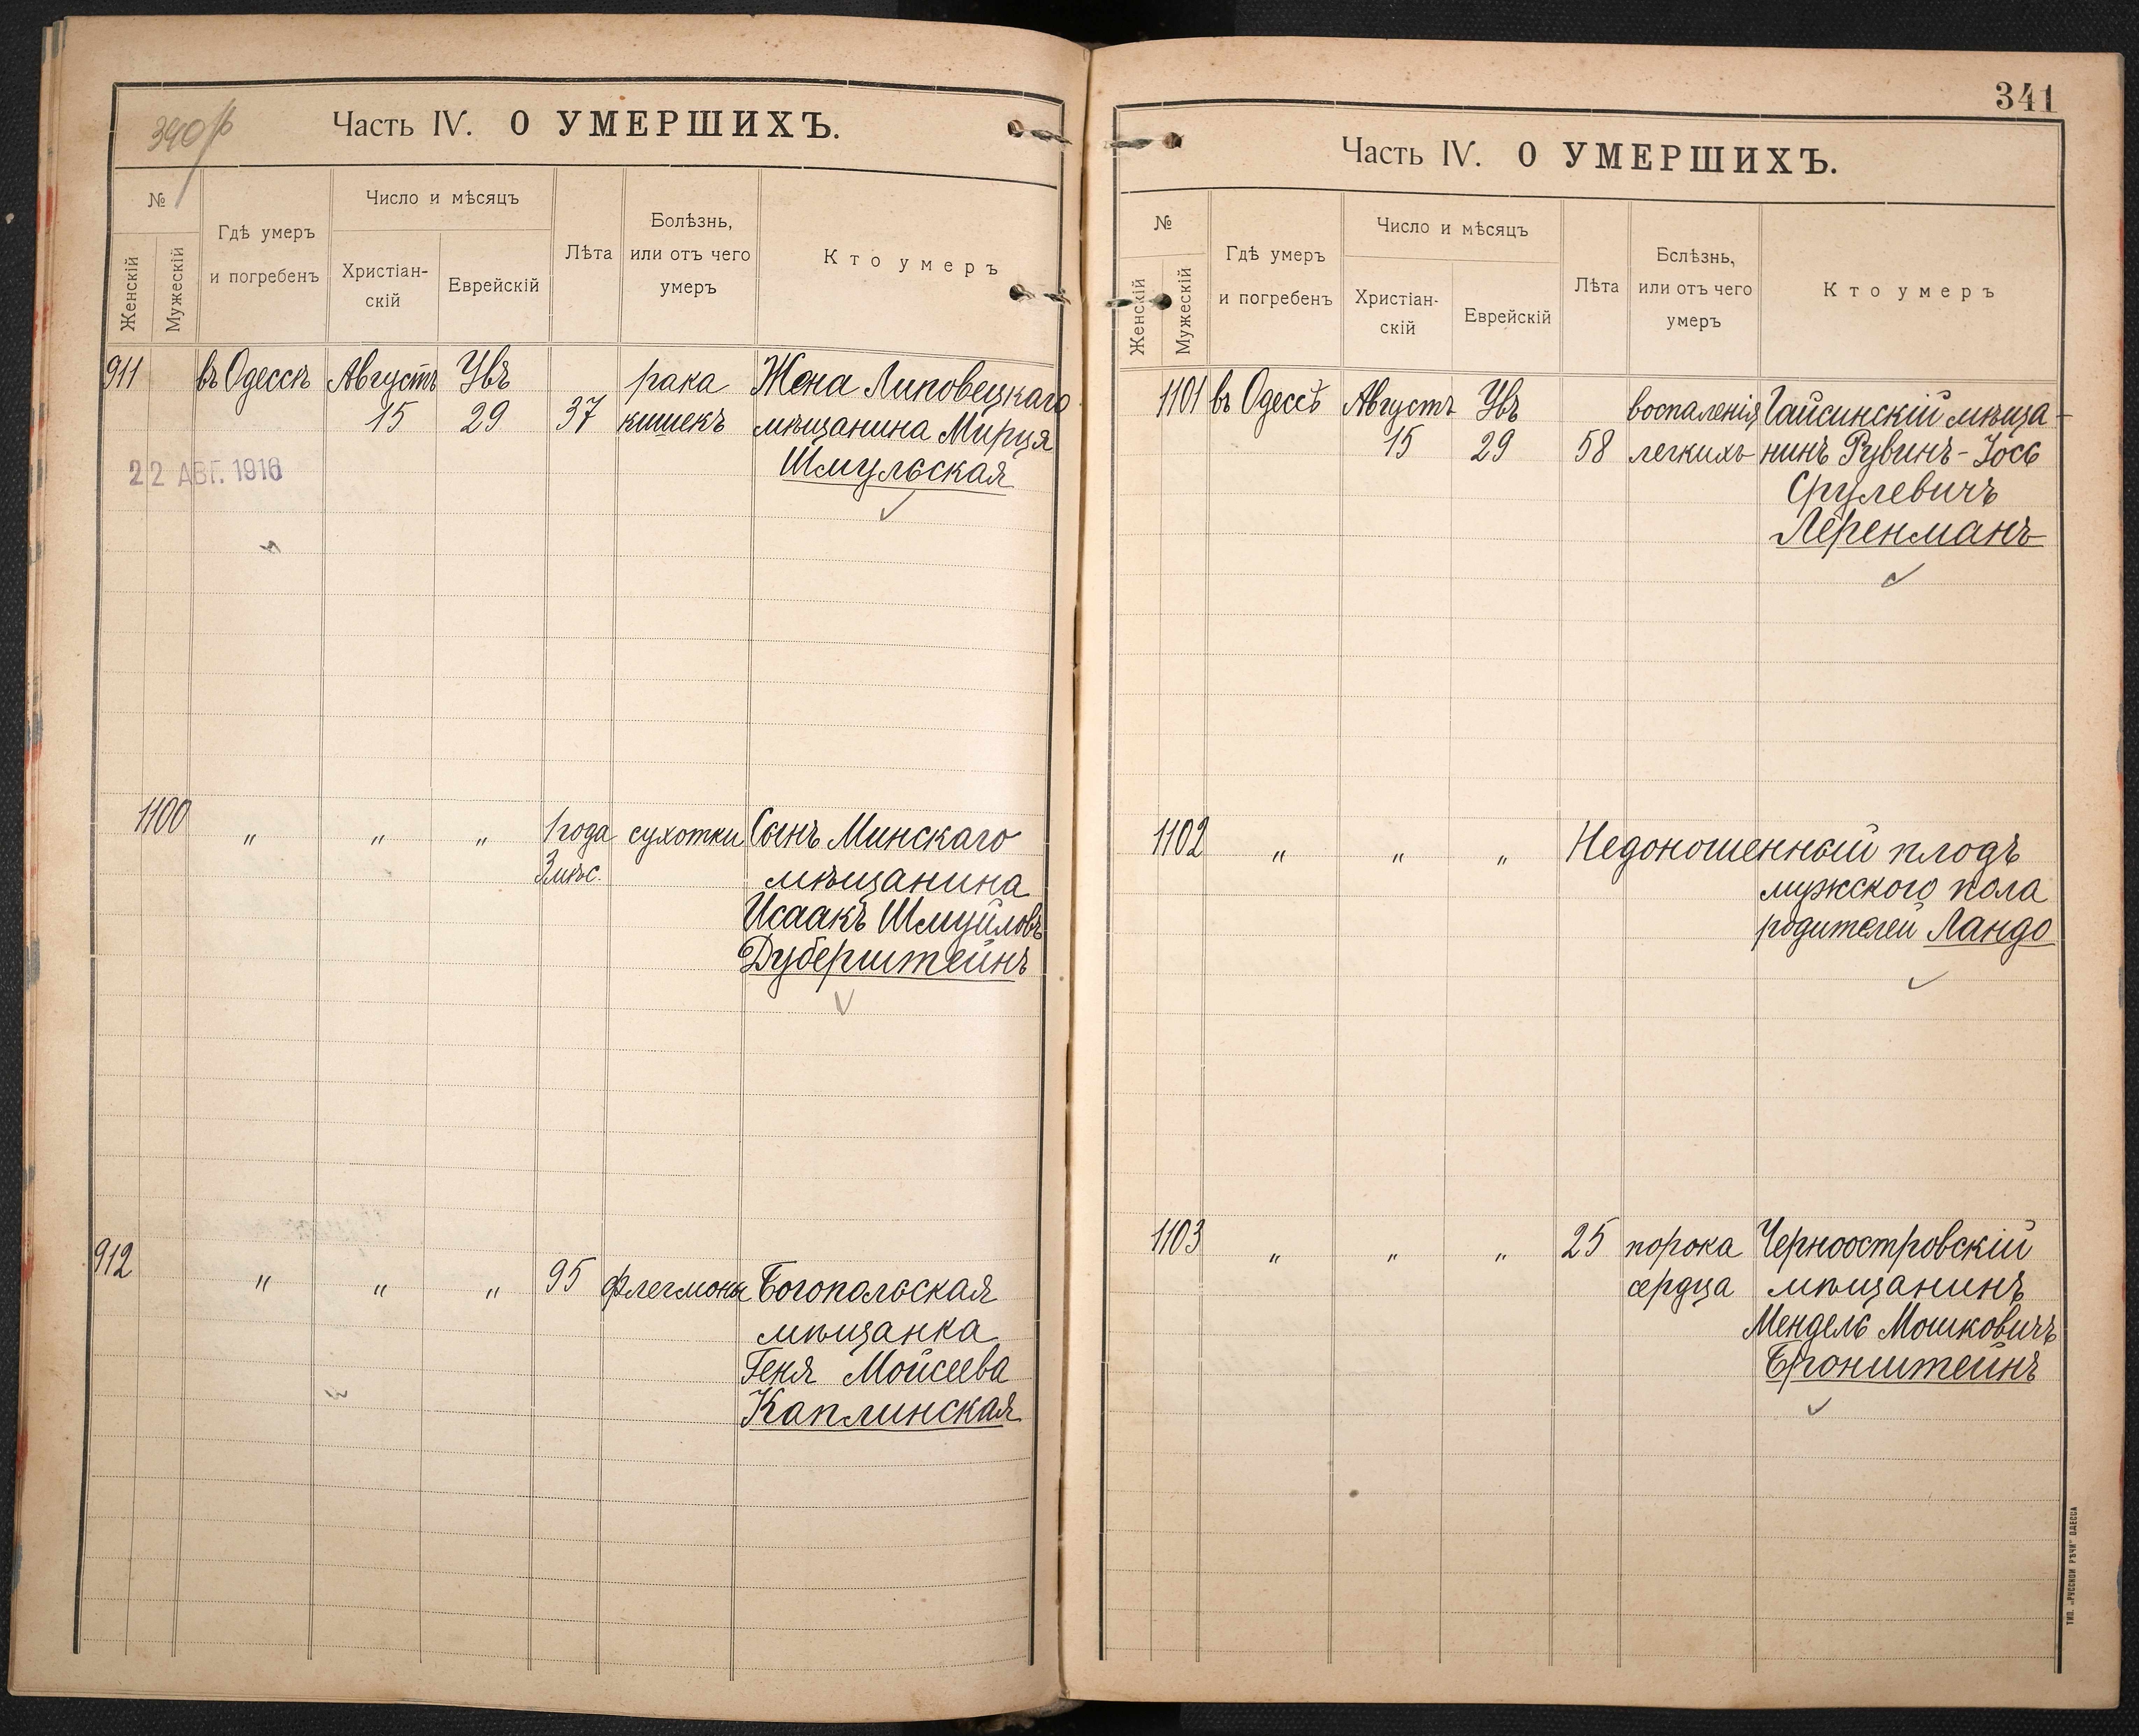 340 об
Часть IV. О УМЕРШИХЪ.
№
Женскій
Мужескій
Гдѣ умеръ
и погребенъ
Число и мѣсяцъ
Христіан-
скій
Еврейскій
Лѣта
Болѣзнь,
или отъ чего
умеръ
Кто умеръ
911 въ Одессѣ Августъ Увъ рака Жена Липовецкаго
15 29 37 кишекъ мѣщанина Мирця
22 АВГ. 1916
Шмульская
1100 " " " 1 года сухотки Сынъ Минскаго
3 мѣс. мѣщанина
Исаакъ Шмуйловъ
Дуберштейнъ
912 " " " 95 флегмоны Богопольская
мѣщанка
Геня Мойсеева
Каплинская
341
Часть IV. О УМЕРШИХЪ.
№
Женскій
Мужескій
Гдѣ умеръ
и погребенъ
Число и мѣсяцъ
Христіан-
скій
Еврейскій
Лѣта
Бслѣзнь,
или отъ чего
умеръ
Кто умеръ
1101 въ Одессѣ Августъ Увъ воспаленія Гайсинскій мѣща-
15 29 58 легкихъ нинъ Рувинъ-Іось
Срулевичъ
Леренманъ
1102 " " " Недоношенный плодъ
мужского пола
родителей Ландо
1103 " " " 25 порока Черноостровскій
сердца мѣщанинъ
Мендель Мошковичъ
Бронштейнъ
ТИП. „РУССКОЙ РѢЧИ" ОДЕССА